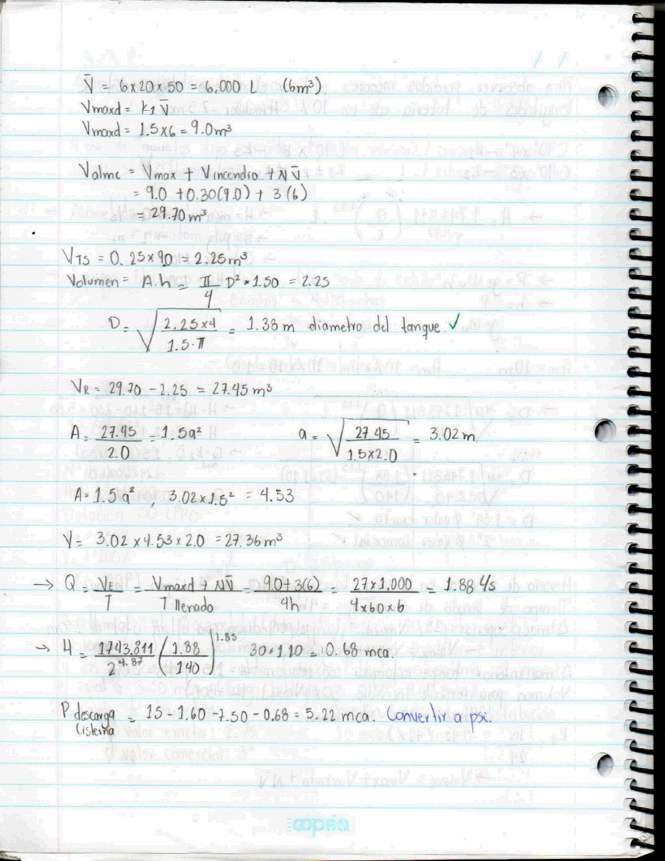 V̄ = 6x20x50 = 6,000 L (6m³)
Vmaxd = k1 V̄
Vmaxd = 1.5x6 = 9.0m³
Valmc = Vmax + Vincendio + NV̄
= 9.0 + 0.30(9.0) + 3(6)
= 29.70 m³
VTS = 0.25x9.0 = 2.25m³
Volumen = A.h = π/4 D² * 1.50 = 2.25
D = √(2.25x4 / 1.5·π) = 1.38 m diametro del tanque. ✓
VR = 29.70 - 2.25 = 27.45 m³
A = 27.45/2.0 = 1.5a² a = √(27.45 / 1.5x2.0) = 3.02 m
A = 1.5 a², 3.02 x 1.5² = 4.53
V = 3.02 x 4.53 x 2.0 = 27.36 m³
→ Q = VR/T = (Vmaxd + NV̄)/T llenado = (9.0+3(6))/4h = (27x1,000)/(4x60x6) = 1.88 L/s
→ H = 1743.811/2^4.87 (1.88/140)^1.85 30*1.10 = 0.68 mca.
P descarga cisterna = 15 - 1.60 - 7.50 - 0.68 = 5.22 mca. Convertir a psi.
copan